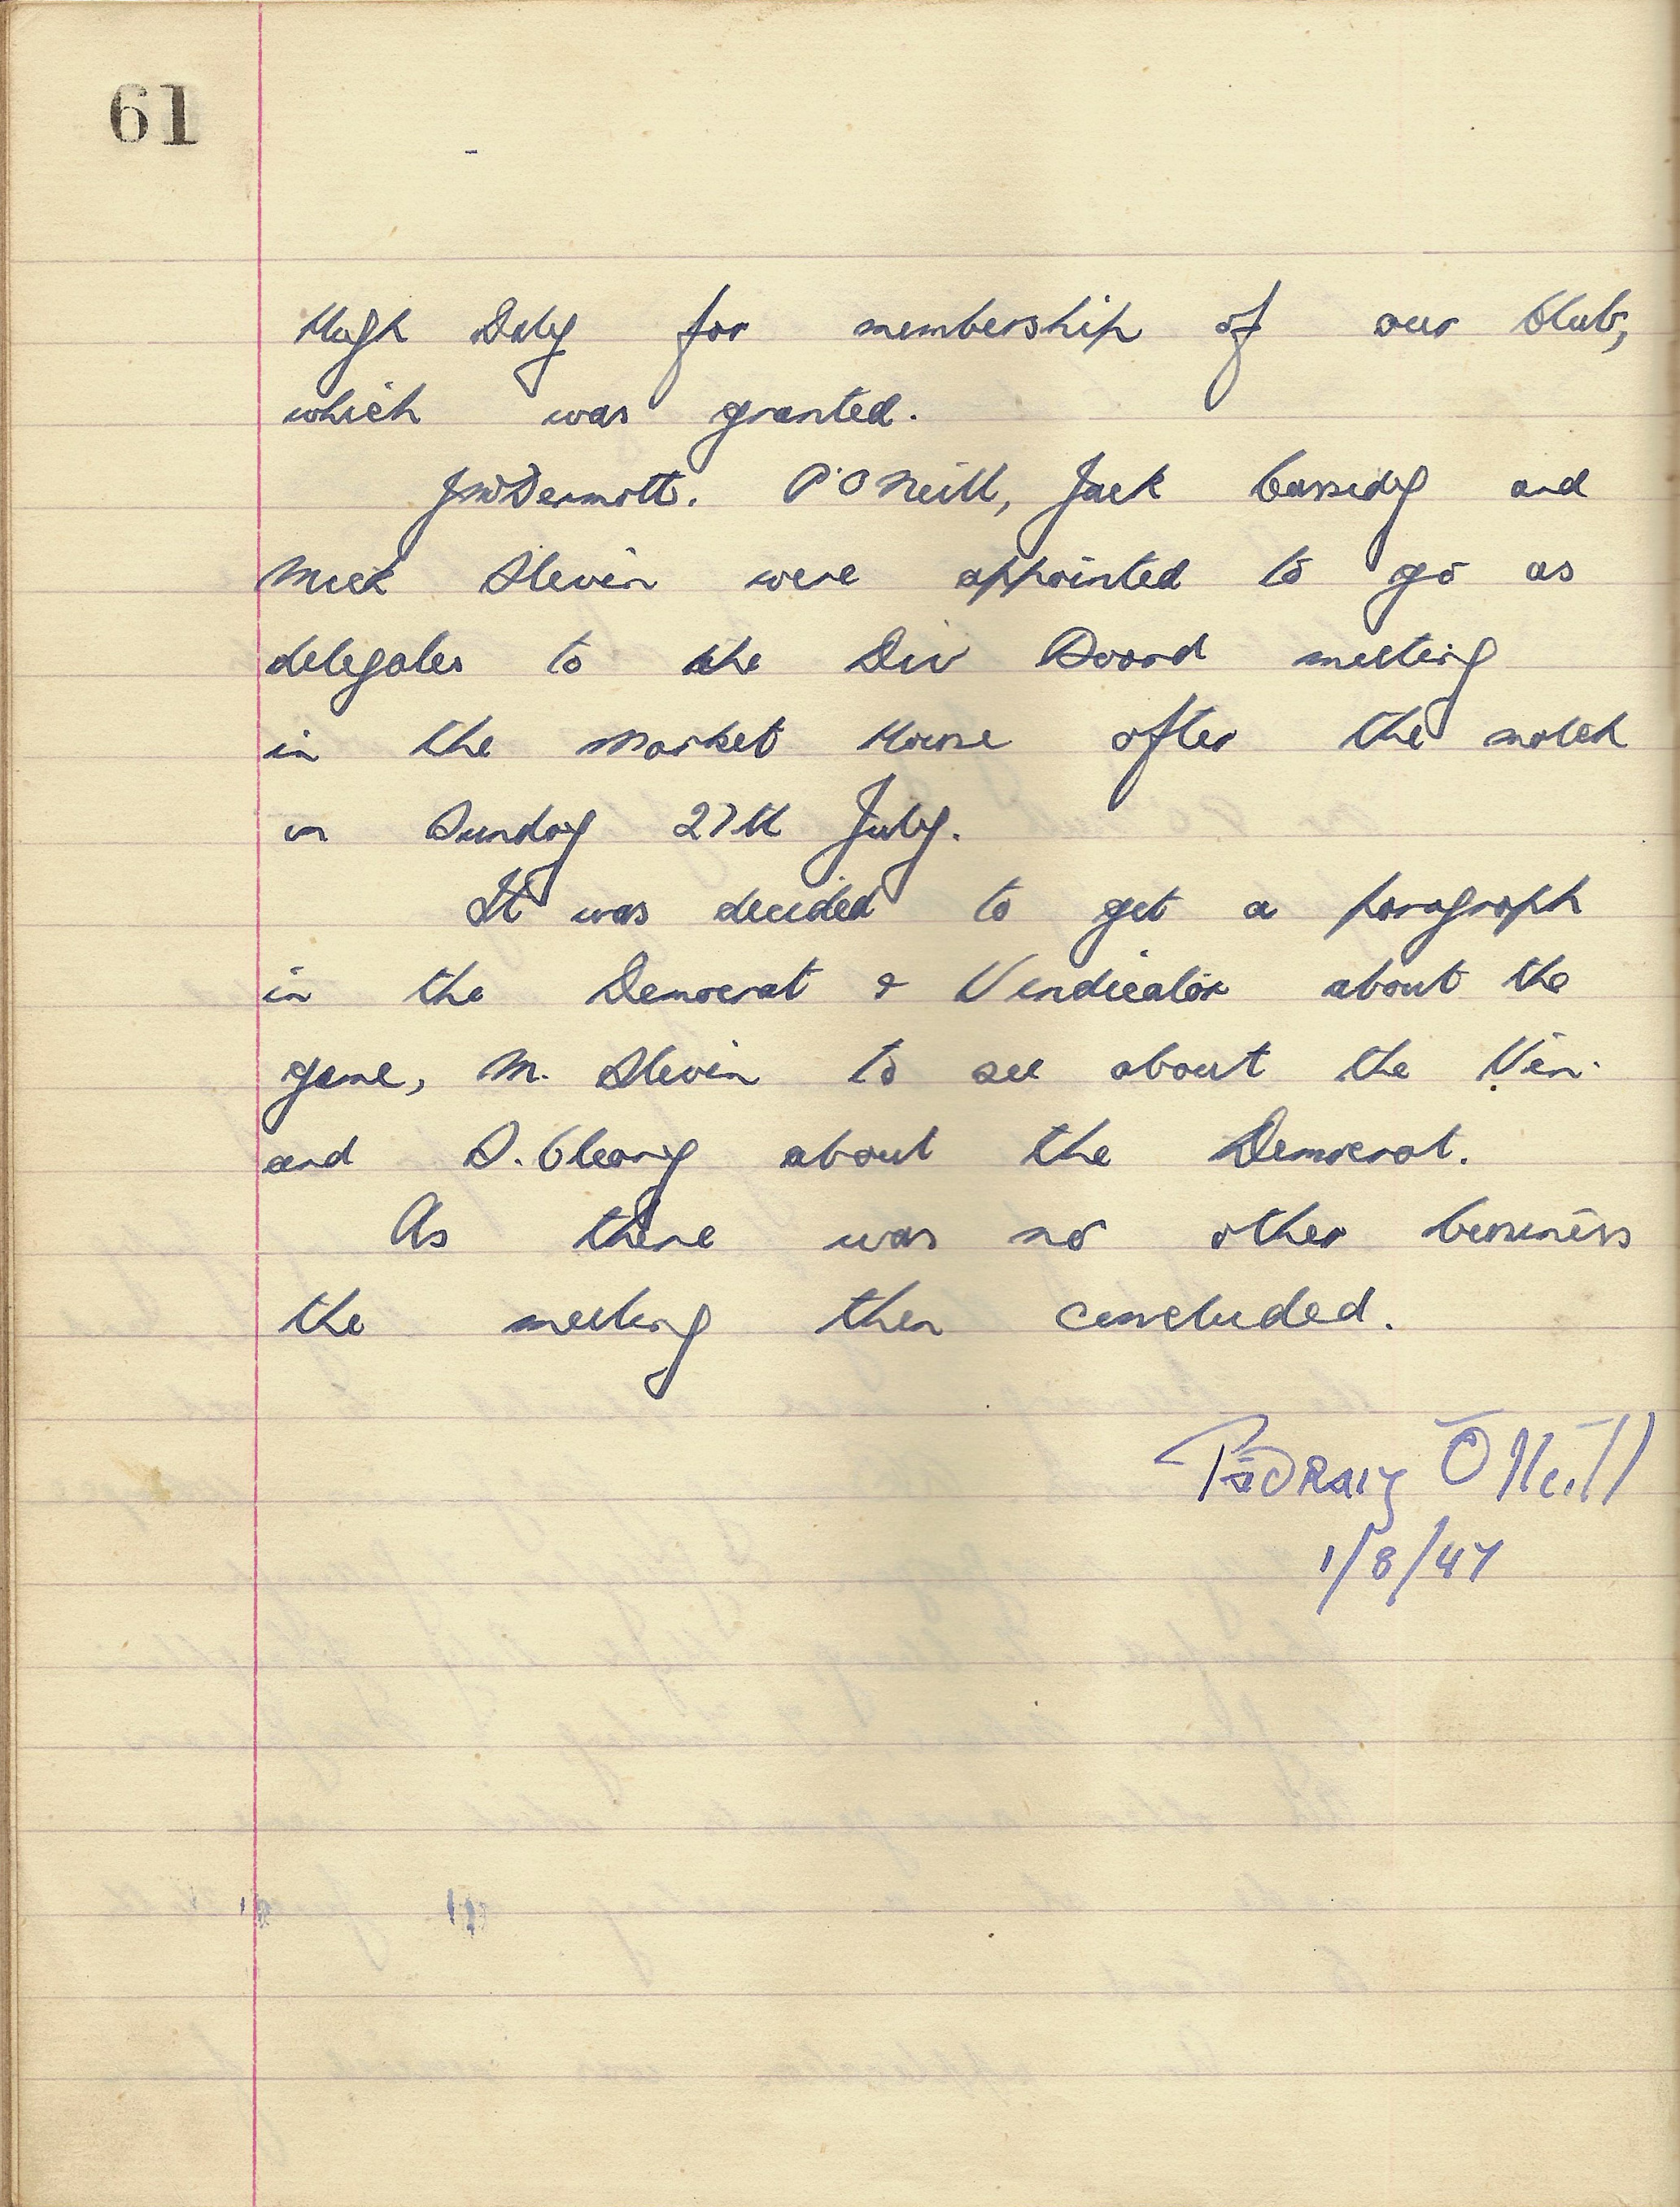 61
Hugh Daly for membership of our Club,
which was granted.
J McDermott. P O'Neill, Jack Cassidy and
Mick Slevin were appointed to go as
delegates to the Div Board meeting
in the Market House after the match
on Sunday 27th July.
It was decided to get a paragraph
in the Democrat & Vindicator about the
game, M. Slevin to see about the Vin.
and D. Cleary about the Democrat.
As there was no other business
the meeting then concluded.
Pádraig Ó Neill
1/8/47